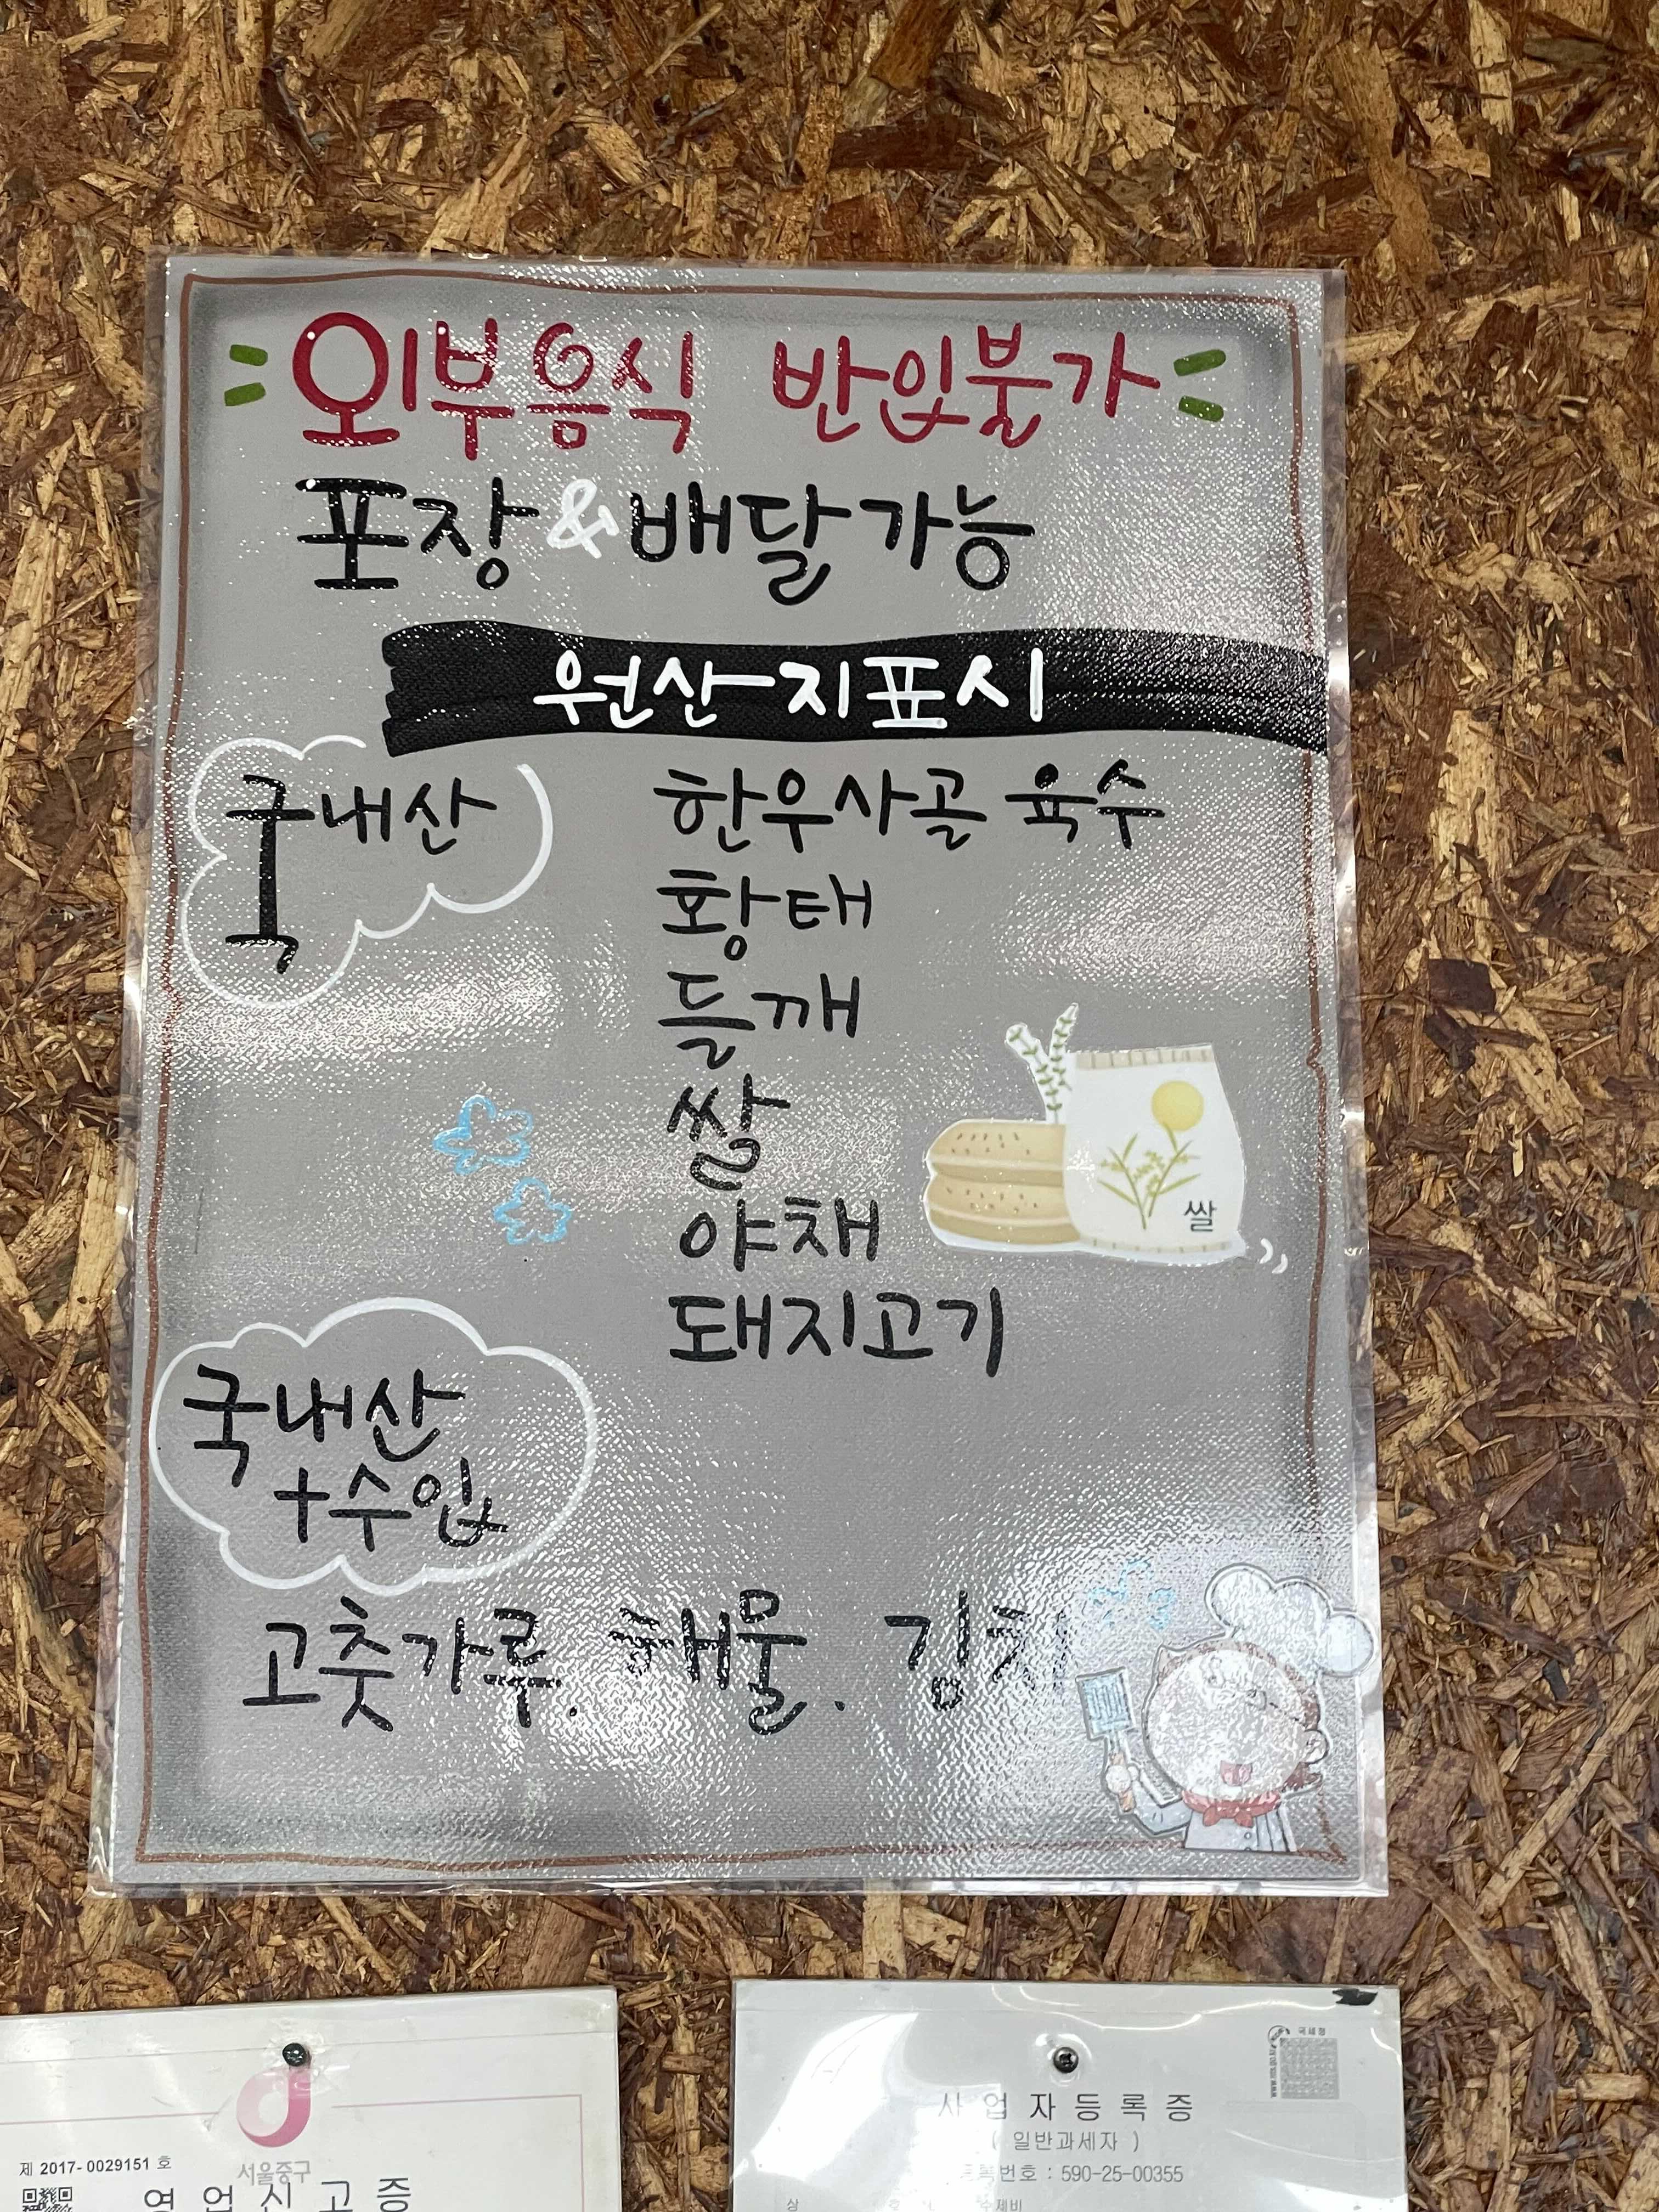 외부음식 반입불가
포장 & 배달가능
원산지표시
국내산
한우사골 육수
황태
들깨
쌀
야채
돼지고기
쌀
국내산
+수입
고춧가루. 해물. 김치
제 2017- 0029151 호
서울중구
영 업 신 고 증
국세청
사 업 자 등 록 증
( 일반과세자 )
등록번호 : 590-25-00355
상
수제비